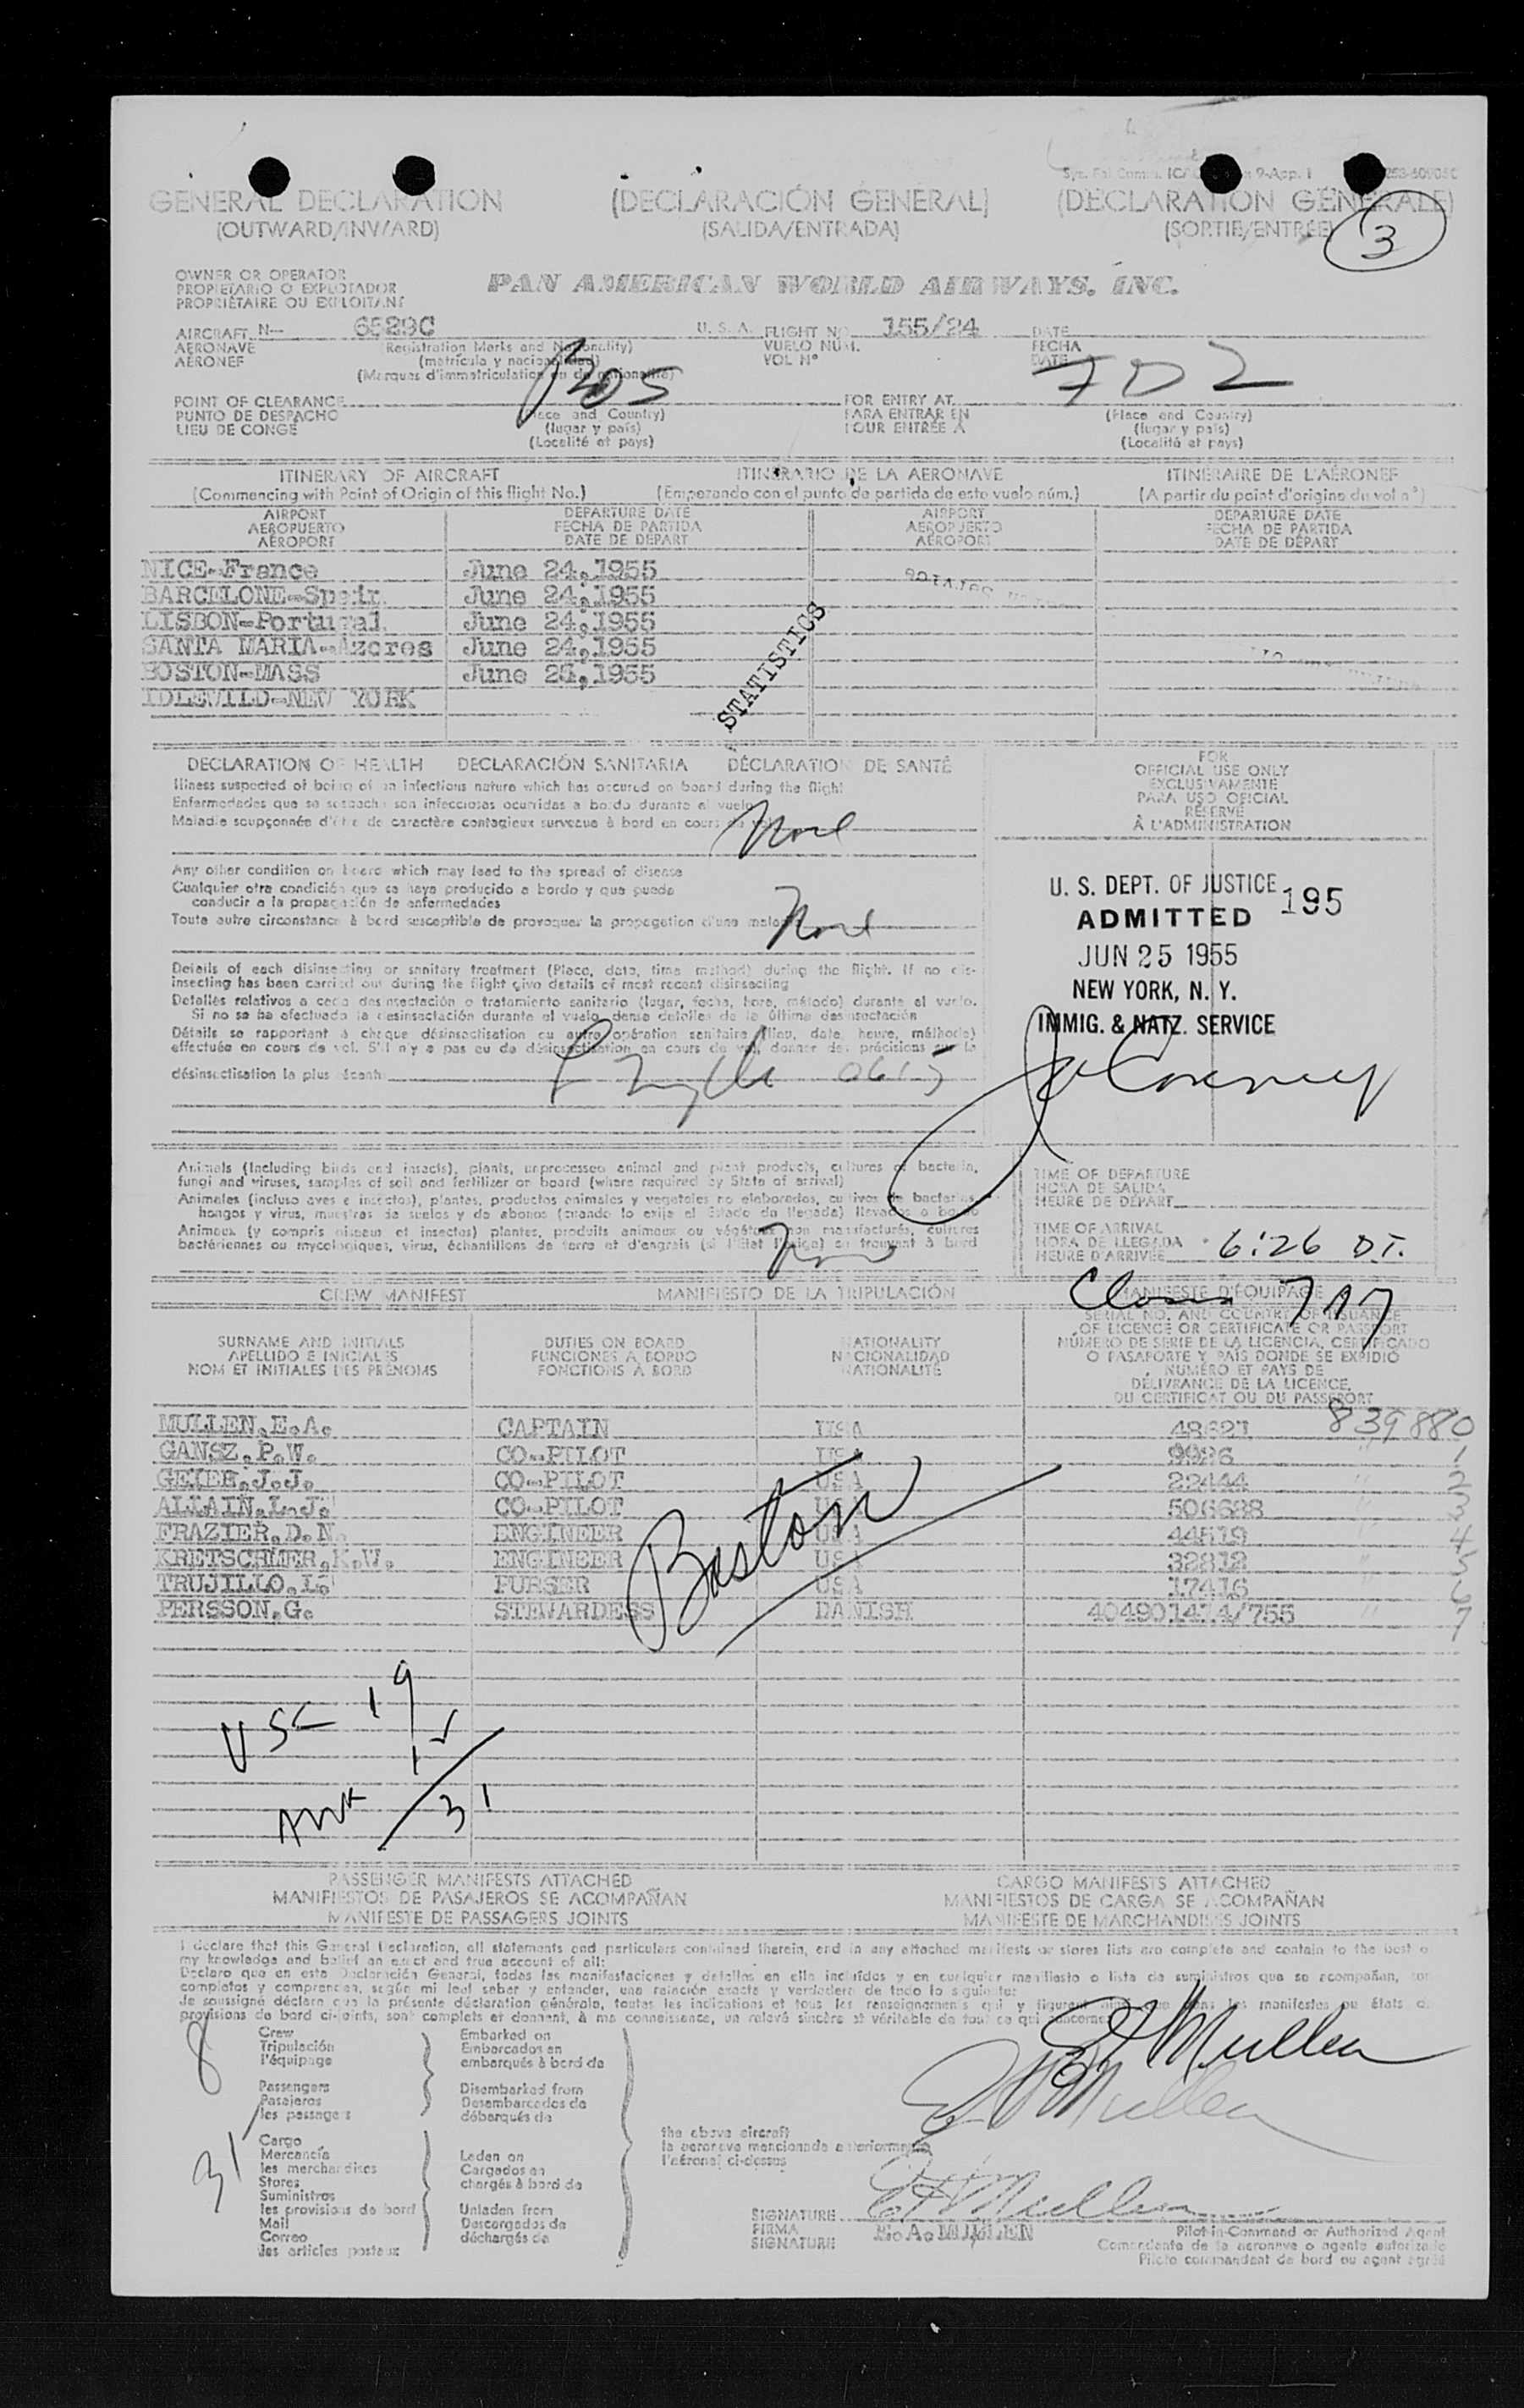 GENERAL DECLARATION (DECLARACIÓN GENERAL) (DECLARATION GÉNÉRALE)
(OUTWARD/INWARD) (SALIDA/ENTRADA) (SORTIE/ENTRÉE) 3
OWNER OR OPERATOR
PROPIETARIO O EXPLOTADOR
PROPRIÉTAIRE OU EXPLOITANT
PAN AMERICAN WORLD AIRWAYS, INC.
AIRCRAFT N— 6529C U. S. A. FLIGHT NO 155/24 DATE
AERONAVE Registration Marks and Nationality) VUELO NÚM. FECHA
AÉRONEF (matrícula y nacionalidad) VOL Nº DATE
(Marques d'immatriculation ou de nationalité)
BOS
POINT OF CLEARANCE FOR ENTRY AT
PUNTO DE DESPACHO (Place and Country) PARA ENTRAR EN (Place and Country)
LIEU DE CONGÉ (lugar y país) POUR ENTRÉE À (lugar y país)
(Localité et pays) (Localité et pays)
ITINERARY OF AIRCRAFT ITINERARIO DE LA AERONAVE ITINÉRAIRE DE L'AÉRONEF
(Commencing with Point of Origin of this flight No.) (Empezando con el punto de partida de este vuelo núm.) (A partir du point d'origine du vol nº)
AIRPORT DEPARTURE DATE AIRPORT DEPARTURE DATE
AEROPUERTO FECHA DE PARTIDA AEROPUERTO FECHA DE PARTIDA
AÉROPORT DATE DE DÉPART AÉROPORT DATE DE DÉPART
NICE-France June 24,1955
BARCELONE-Spain June 24,1955
LISBON-Portugal June 24,1955
SANTA MARIA-Azores June 24,1955
BOSTON-MASS June 25,1955
IDLEWILD-NEW YORK
STATISTICS
DECLARATION OF HEALTH DECLARACIÓN SANITARIA DÉCLARATION DE SANTÉ
Illness suspected of being of an infectious nature which has occured on board during the flight
Enfermedades que se sospecha son infecciosas ocurridas a bordo durante el vuelo
Maladie soupçonnée d'être de caractère contagieux survenue à bord en cours de vol
None
Any other condition on board which may lead to the spread of disease
Cualquier otra condición que se haya producido a bordo y que pueda
conducir a la propagación de enfermedades
Toute autre circonstance à bord susceptible de provoquer la propagation d'une maladie
None
Details of each disinsecting or sanitary treatment (Place, date, time method) during the flight. If no dis-
insecting has been carried out during the flight give details of most recent disinsecting
Detalles relativos a cada desinsectación o tratamiento sanitario (lugar, fecha, hora, método) durante el vuelo.
Si no se ha efectuado la desinsectación durante el vuelo, dense detalles de la última desinsectación
Détails se rapportant à chaque désinsectisation ou autre opération sanitaire (lieu, date, heure, méthode)
effectuée en cours de vol. S'il n'y a pas eu de désinsectisation en cours de vol, donner des précisions sur la
désinsectisation la plus récente
0615
FOR
OFFICIAL USE ONLY
EXCLUSIVAMENTE
PARA USO OFICIAL
RÉSERVÉ
À L'ADMINISTRATION
U. S. DEPT. OF JUSTICE 195
ADMITTED
JUN 25 1955
NEW YORK, N. Y.
IMMIG. & NATZ. SERVICE
Animals (Including birds and insects), plants, unprocessed animal and plant products, cultures of bacteria,
fungi and viruses, samples of soil and fertilizer on board (where required by State of arrival)
Animales (incluso aves e insectos), plantas, productos animales y vegetales no elaborados, cultivos de bacterias
hongos y virus, muestras de suelos y de abonos (cuando lo exija el Estado de llegada) llevados a bordo
Animaux (y compris oiseaux et insectes) plantes, produits animaux ou végétaux non manufacturés, cultures
bactériennes ou mycologiques, virus, échantillons de terre et d'engrais (si l'État l'exige) se trouvant à bord
None
TIME OF DEPARTURE
HORA DE SALIDA
HEURE DE DÉPART
TIME OF ARRIVAL
HORA DE LLEGADA
HEURE D'ARRIVÉE 6:26 DT.
CREW MANIFEST MANIFIESTO DE LA TRIPULACIÓN MANIFESTE D'ÉQUIPAGE
SURNAME AND INITIALS DUTIES ON BOARD NATIONALITY
APELLIDO E INICIALES FUNCIONES A BORDO NACIONALIDAD
NOM ET INITIALES DES PRÉNOMS FONCTIONS À BORD NATIONALITÉ
SERIAL NO. AND COUNTRY OF ISSUANCE
OF LICENCE OR CERTIFICATE OR PASSPORT
NÚMERO DE SERIE DE LA LICENCIA, CERTIFICADO
O PASAPORTE Y PAÍS DONDE SE EXPIDIÓ
NUMÉRO ET PAYS DE
DÉLIVRANCE DE LA LICENCE,
DU CERTIFICAT OU DU PASSEPORT
MULLEN,E.A. CAPTAIN USA 48621 839880
GANSZ,P.W. CO-PILOT USA 9986 " 1
GEIER,J.J. CO-PILOT USA 22444 " 2
ALLAIN,L.J. CO-PILOT USA 506688 " 3
FRAZIER,D.N. ENGINEER USA 44519 " 4
KRETSCHMER,K.W. ENGINEER USA 32812 " 5
TRUJILLO,L. PURSER USA 17416 " 6
PERSSON,G. STEWARDESS DANISH 404901474/755 " 7
Boston
USC 19
31
PASSENGER MANIFESTS ATTACHED CARGO MANIFESTS ATTACHED
MANIFIESTOS DE PASAJEROS SE ACOMPAÑAN MANIFIESTOS DE CARGA SE ACOMPAÑAN
MANIFESTE DE PASSAGERS JOINTS MANIFESTE DE MARCHANDISES JOINTS
I declare that this General Declaration, all statements and particulars contained therein, and in any attached manifests or stores lists are complete and contain to the best o
my knowledge and belief an exact and true account of all:
Declaro que en esta Declaración General, todas las manifestaciones y detalles en ella incluídos y en cualquier manifiesto o lista de suministros que se acompañan, son
completos y comprenden, según mi leal saber y entender, una relación exacta y verdadera de todo lo siguiente:
Je soussigné déclare que la présente déclaration générale, toutes les indications et tous les renseignements qui y figurent ainsi que dans les manifestes ou états d
provisions de bord ci-joints, sont complets et donnent, à ma connaissance, un relevé sincère et véritable de tout ce qui concerne:
8 Crew
Tripulación
l'équipage
Passengers
Pasajeros
les passagers
31
Cargo
Mercancía
les merchandises
Stores
Suministros
les provisions de bord
Mail
Correo
les articles postaux
Embarked on
Embarcados en
embarqués à bord de
Disembarked from
Desembarcados de
débarqués de
Laden on
Cargados en
chargés à bord de
Unladen from
Descargados de
déchargés de
the above aircraft
la aeronave mencionada anteriormente
l'aéronef ci-dessus
EA Mullen
EA Mullen
SIGNATURE EA Mullen
FIRMA E.A.MULLEN Pilot-in-Command or Authorized Agent
SIGNATURE Comandante de la aeronave o agente autorizado
Pilote commandant de bord ou agent agréé